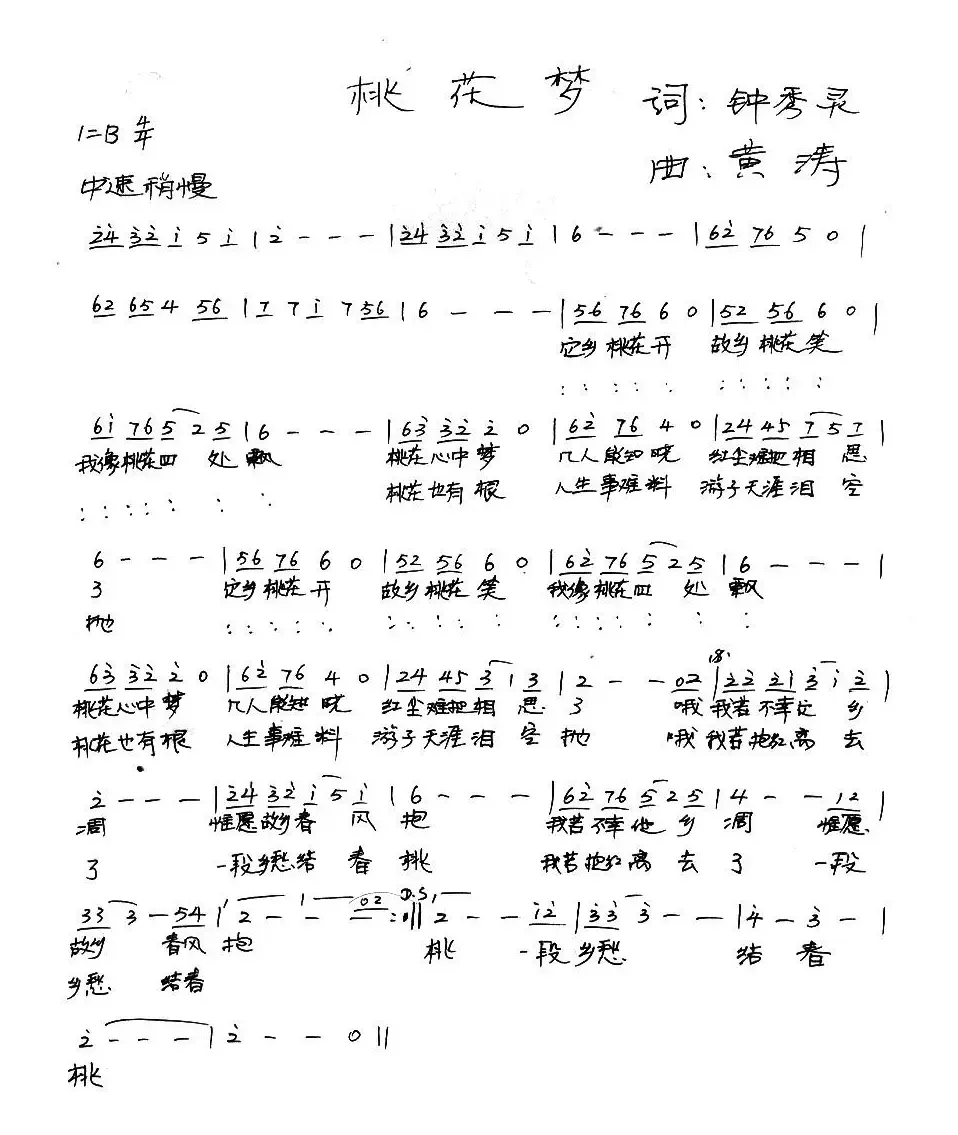 桃花梦
词：钟秀灵
1=B 4/4
曲：黄涛
中速稍慢
2̇4̇ 3̇2̇ 1̇ 5 1̇ | 2̇ - - - | 2̇4̇ 3̇2̇ 1̇ 5 1̇ | 6 - - - | 62̇ 76 5 0 |
62 65 4 56 | 7 7 1̇ 7 56 | 6 - - - | 56 76 6 0 | 52 56 6 0 |
它乡桃花开 故乡桃花笑
: : : : : : : : : :
61̇ 76 5 2 5 | 6 - - - | 63̇ 3̇2̇ 2̇ 0 | 62̇ 76 4 0 | 24 45 7 5 7 |
我像桃花四 处飘 桃花心中梦 几人能知晓 红尘难把相 思
: : : : : : : 桃花也有根 人生事难料 游子天涯泪 空
6 - - - | 56 76 6 0 | 52 56 6 0 | 62̇ 76 5 2 5 | 6 - - - |
了 它乡桃花开 故乡桃花笑 我像桃花四 处 飘
抛 : : : : : : : : : : : : : : : : :
63̇ 3̇2̇ 2̇ 0 | 62̇ 76 4 0 | 24 45 3 1 3 | 2 - - 02 | 2̇2̇ 2̇1̇ 3̇ 1̇ 2̇ |
桃花心中梦 几人能知晓 红尘难把相 思 了 哦 我若不幸他 乡
桃花也有根 人生事难料 游子天涯泪 空 抛 哦 我若抱红离 去
2̇ - - - | 2̇4̇ 3̇2̇ 1̇ 5 1̇ | 6 - - - | 62̇ 76 5 2 5 | 4 - - 12 |
凋 惟愿故乡春 风 抱 我若不幸他 乡 凋 惟愿
了 一段乡愁结 春 桃 我若抱红离 去 了 一段
33 3 - 54 | 2 - - - 02 :|| D.S. 2 - - 1̇2̇ | 3̇3̇ 3̇ - - | 4̇ - 3̇ - |
故乡 春风 抱 桃 一段 乡愁 结 春
乡愁 结春
2̇ - - - | 2̇ - - 0 ||
桃